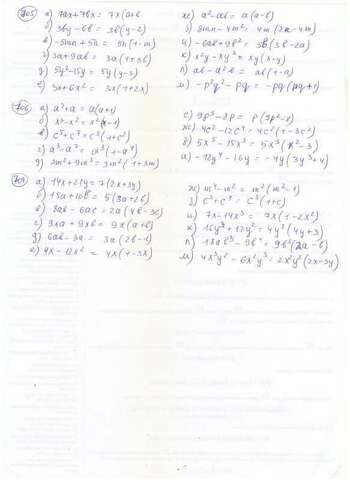 705 а) 7ax+7bx = 7x(a+b
б) 3by-6b = 3b(y-2)
в) -5mn+5n = 5n(1-m)
г) 3a+9ab = 3a(1+3b)
д) 5y²-15y = 5y(y-3)
е) 3x+6x² = 3x(1+2x)
ж) a²-ab = a(a-b)
з) 8mn-4m² = 4m(2n-m)
и) -6ab+9b² = 3b(3b-2a)
к) x²y-xy² = xy(x-y)
л) ab-a²b = ab(1-a)
м) -p²q²-pq = -pq(pq+1)
706 а) a²+a = a(a+1)
б) x³-x² = x²(x-1)
в) c⁵+c⁷ = c⁵(1+c²)
г) a³-a⁷ = a³(1-a⁴)
д) 3m²+9m³ = 3m²(1+3m)
е) 9p³-8p = p(9p²-8)
ж) 4c²-12c⁴ = 4c²(1-3c²)
з) 5x⁵-15x³ = 5x³(x²-3)
и) -12y⁴-16y = -4y(3y³+4)
707 а) 14x+21y = 7(2x+3y)
б) 15a+10b = 5(3a+2b)
в) 8ab-6ac = 2a(4b-3c)
г) 9xa+9xb = 9x(a+b)
д) 6ab-3a = 3a(2b-1)
е) 4x-12x² = 4x(1-3x)
ж) m⁴-m² = m²(m²-1)
з) c³+c⁴ = c³(1+c)
и) 7x-14x³ = 7x(1-2x²)
к) 16y³+12y² = 4y²(4y+3)
л) 18ab³-9b⁴ = 9b³(2a-b)
м) 4x³y²-6x²y³ = 2x²y²(2x-3y)